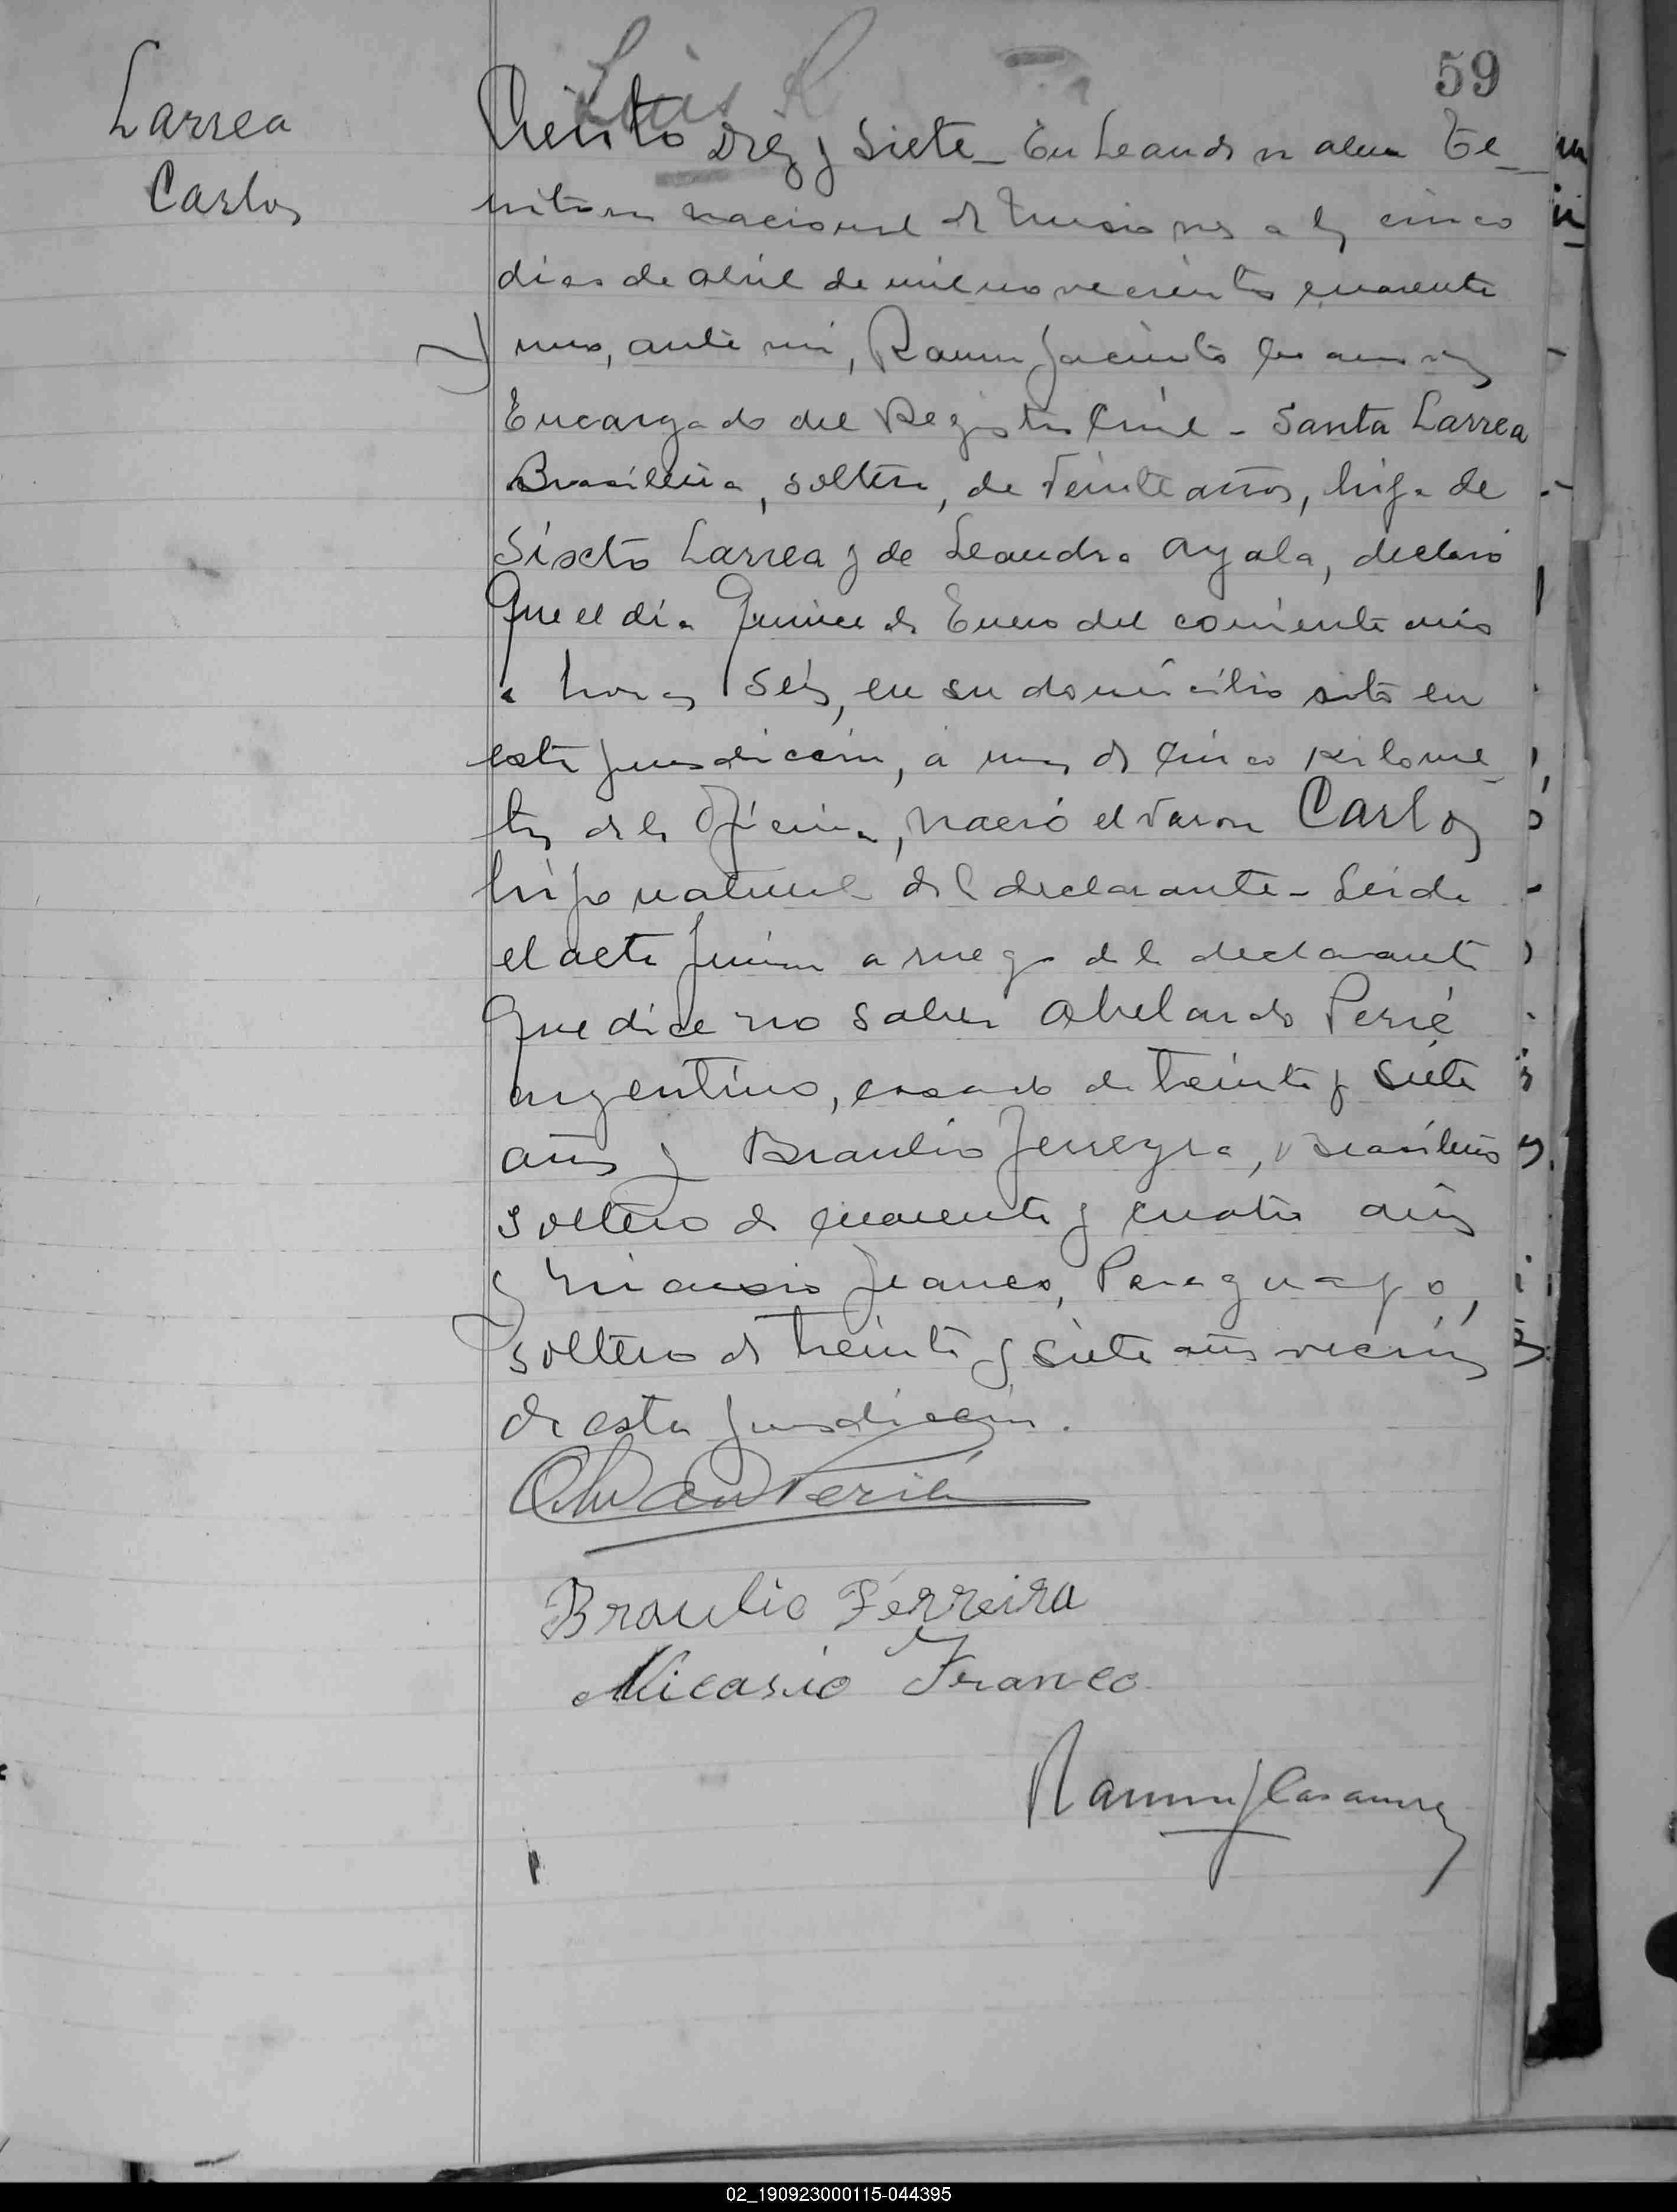 59
Luis R
Larrea
Carlos
Ciento Diez y Siete_ En Leandro n alem Te_
rritorio nacional de Misiones a los cinco
dias de abril de mil novecientos cuarenta
uno, ante mi, Ramon Jacinto Casamores
Encargado del Registro Civil - Santa Larrea
Brasileña, soltera, de veinte años, hija de
Sixcto Larrea y de Leandra ayala, declaró
Que el dia Quince de Enero del corriente año
a horas seis, en su domicilio sito en
esta jurisdiccion, a mas de cinco kilome_
tros de la Oficina, nació el varon Carlos
hijo natural de la declarante - Leida
el acta firman a ruego de la declarante
Que dice no saber Abelardo Perié
argentino, casado de treinta y siete
años y Braulio Ferreyra, Brasileño
soltero de cuarenta y cuatro años
y Nicasio Franco, Paraguayo,
soltero de treinta y siete años vecinos
de esta jurisdiccion.
Perié
Braulio Ferreira
Nicasio Franco
Ramon J Casamores
02_190923000115-044395